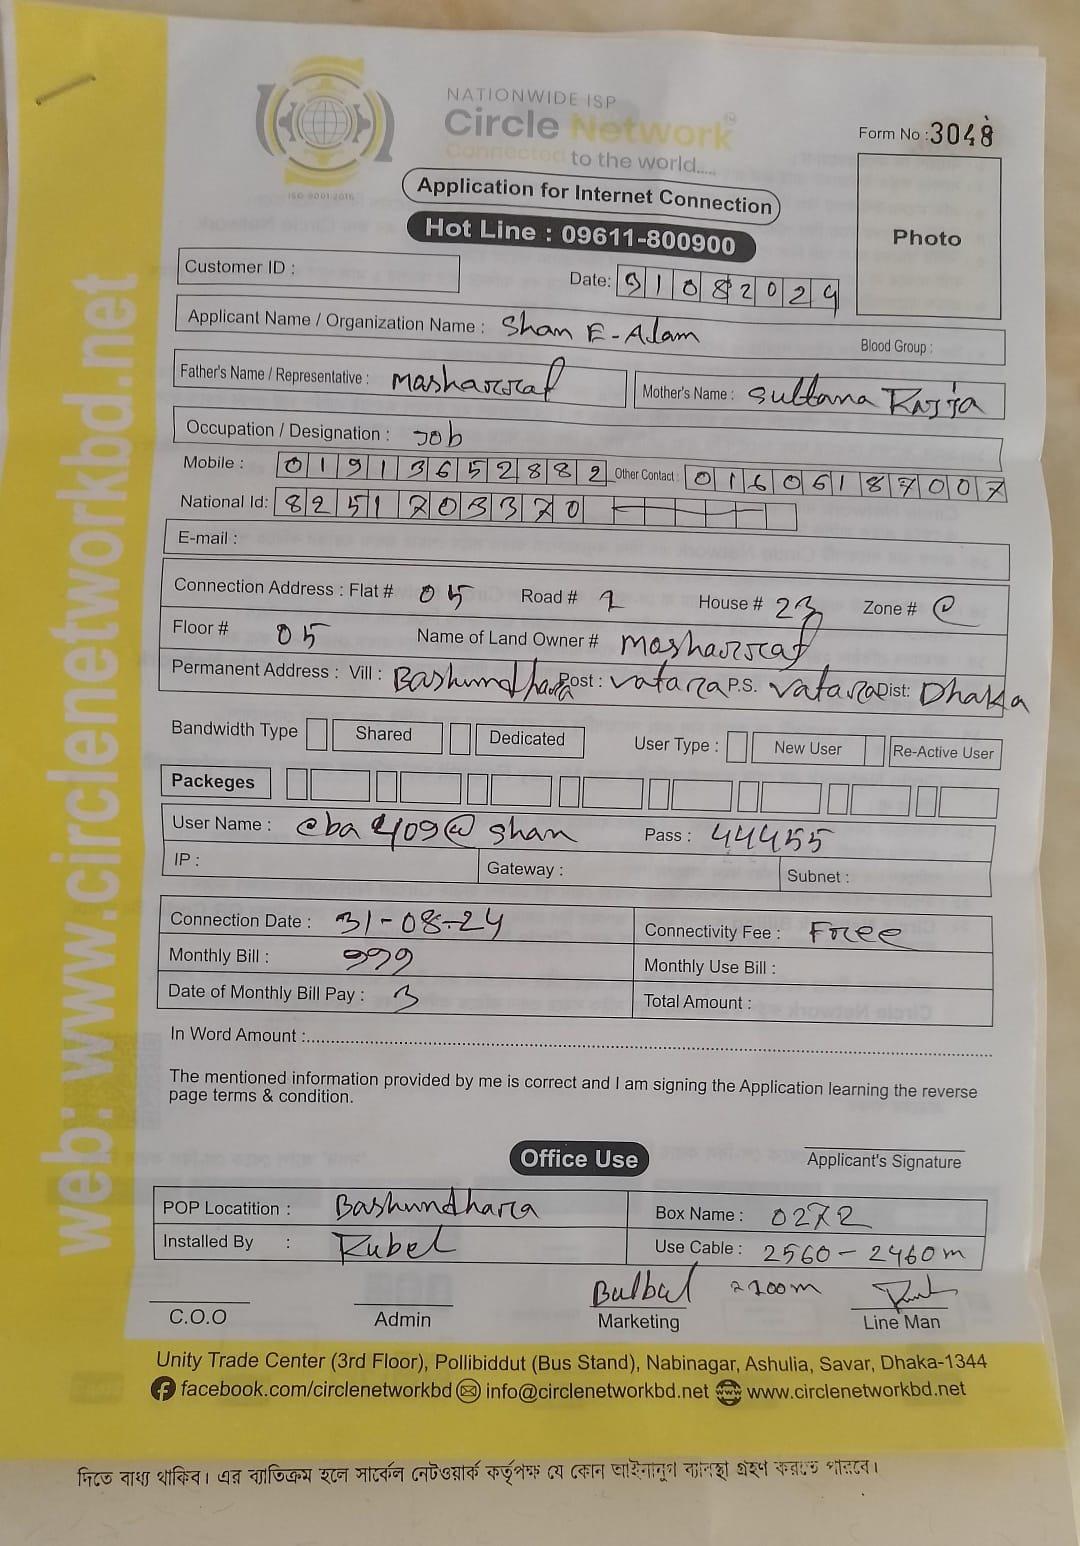 NATIONWIDE ISP
Circle Network
Connected to the world.....
ISO 9001:2015
Form No : 3048
Application for Internet Connection
Hot Line : 09611-800900
Photo
Customer ID :
Date: 31082024
Applicant Name / Organization Name : Shan E-Alam
Blood Group :
Father's Name / Representative : Masharraf
Mother's Name : Sultana
Occupation / Designation : Job
Mobile : 01913652882 Other Contact : 01606187007
National Id: 8251703370
E-mail :
Connection Address : Flat # 05 Road # 2 House # 23 Zone # C
Floor # 05 Name of Land Owner # Masharraf
Permanent Address : Vill : Bashundhara Post : Vatara P.S. Vatara Dist: Dhaka
Bandwidth Type Shared Dedicated User Type : New User Re-Active User
Packeges
User Name : cba409@shan Pass : 44455
IP : Gateway : Subnet :
Connection Date : 31-08-24 Connectivity Fee : Free
Monthly Bill : 999 Monthly Use Bill :
Date of Monthly Bill Pay : 3 Total Amount :
In Word Amount :
The mentioned information provided by me is correct and I am signing the Application learning the reverse
page terms & condition.
Office Use
Applicant's Signature
POP Locatition : Bashundhara Box Name : 0272
Installed By : Rubel Use Cable : 2560 - 2460m
Bulbul 100m
C.O.O Admin Marketing Line Man
Unity Trade Center (3rd Floor), Pollibiddut (Bus Stand), Nabinagar, Ashulia, Savar, Dhaka-1344
facebook.com/circlenetworkbd info@circlenetworkbd.net www.circlenetworkbd.net
web: www.circlenetworkbd.net
দিতে বাধ্য থাকিব। এর ব্যতিক্রম হলে সার্কেল নেটওয়ার্ক কর্তৃপক্ষ যে কোন আইনানুগ ব্যবস্থা গ্রহণ করতে পারবে।